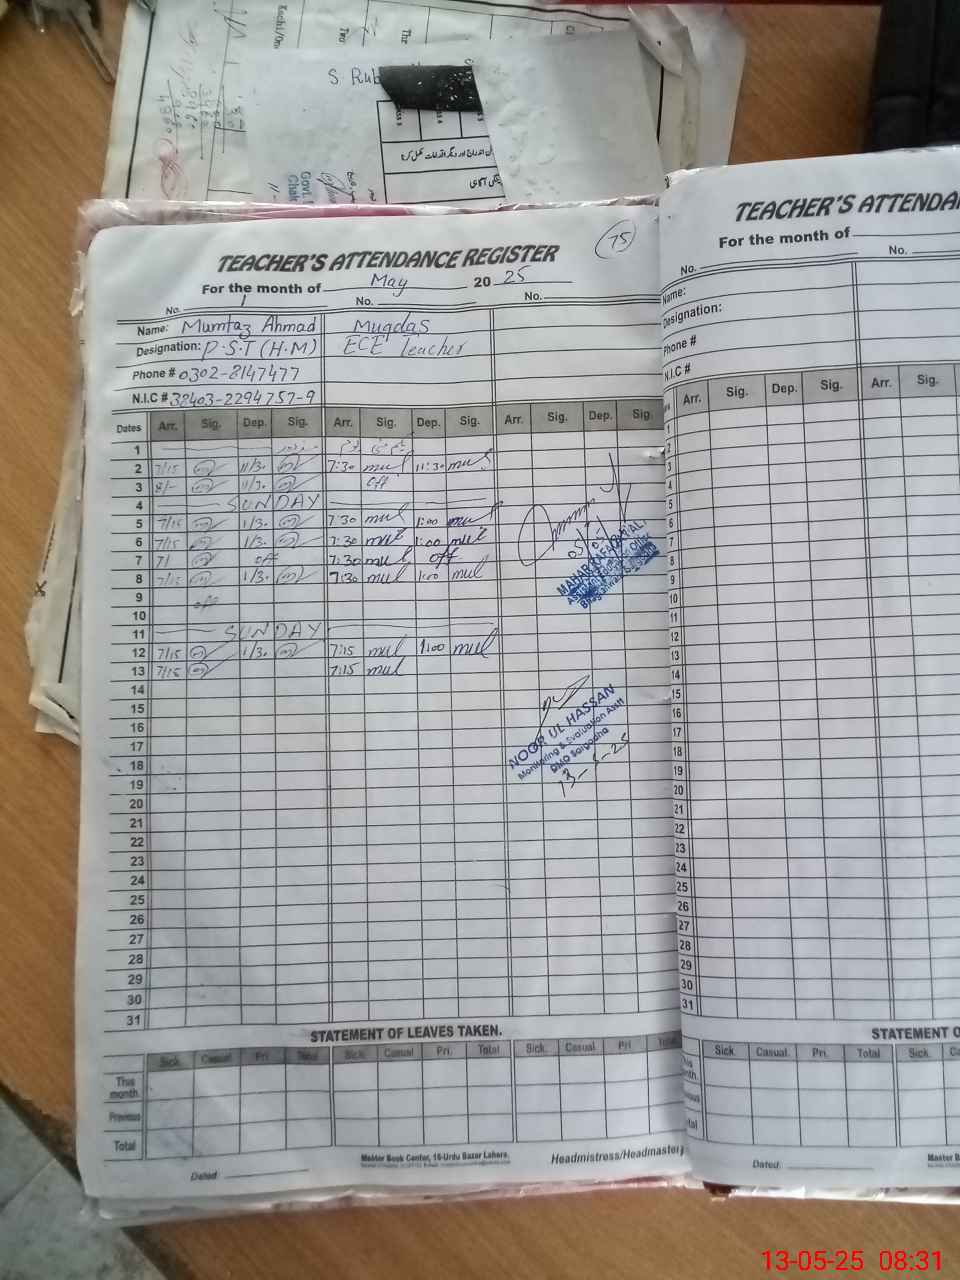 S Rub
Govt.
TEACHER'S ATTENDANCE REGISTER
75
For the month of May 20 25
No. 1 No. No.
Name: Mumtaz Ahmad Muqdas
Designation: P.S.T (H.M) ECE Teacher
Phone # 0302-8147477
N.I.C # 38403-2294757-9
Dates Arr. Sig. Dep. Sig. Arr. Sig. Dep. Sig. Arr. Sig. Dep. Sig.
1
2 7/15 11/30 7:30 mul 11:30 mul
3 8/- 11/30 off
4 SUNDAY
5 7/15 1/30 7:30 mul 1:00 mul
6 7/15 1/30 7:30 mul 1:00 mul
7 off 7:30 mul off
8 7/15 1/30 7:30 mul 1:00 mul
9 off
10
11 SUNDAY
12 7/15 1/30 7:15 mul 1:00 mul
13 7/15 7:15 mul
14
15
16
17
18
19
20
21
22
23
24
25
26
27
28
29
30
31
NOOR UL HASSAN
Monitoring & Evaluation Asstt
DMO Sargodha
13-5-25
STATEMENT OF LEAVES TAKEN.
Sick. Casual Pri. Total Sick. Casual Pri. Total Sick. Casual Pri. Total
This month.
Previous
Total
Master Book Center, 16-Urdu Bazar Lahore.
Dated Headmistress/Headmaster
TEACHER'S ATTENDA
For the month of
No. No.
Name:
Designation:
Phone #
N.I.C #
Arr. Sig. Dep. Sig. Arr. Sig.
1
2
3
4
5
6
7
8
9
10
11
12
13
14
15
16
17
18
19
20
21
22
23
24
25
26
27
28
29
30
31
STATEMENT O
Sick. Casual. Pri. Total Sick.
Dated: Master B
13-05-25 08:31